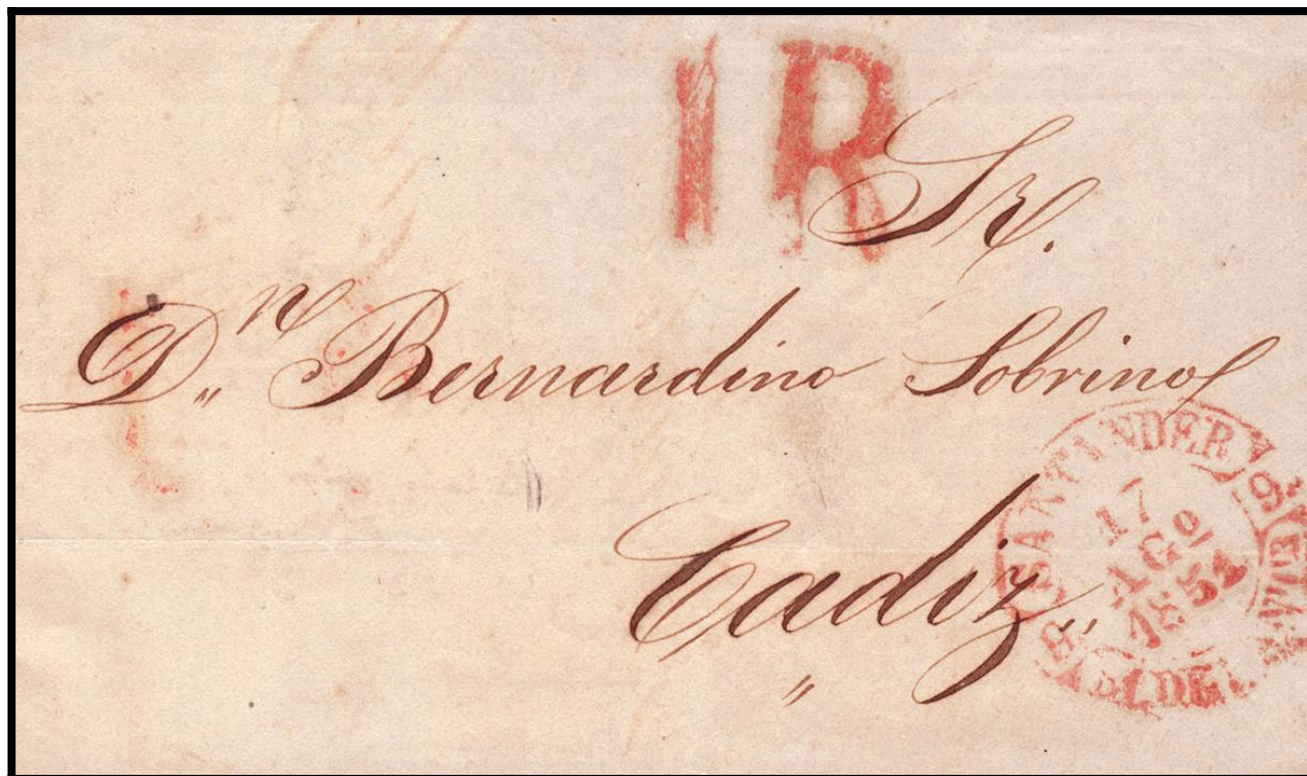 1R
Sr.
D.ⁿ Bernardino Sobrino
Cadiz
SANTANDER
17
AGO